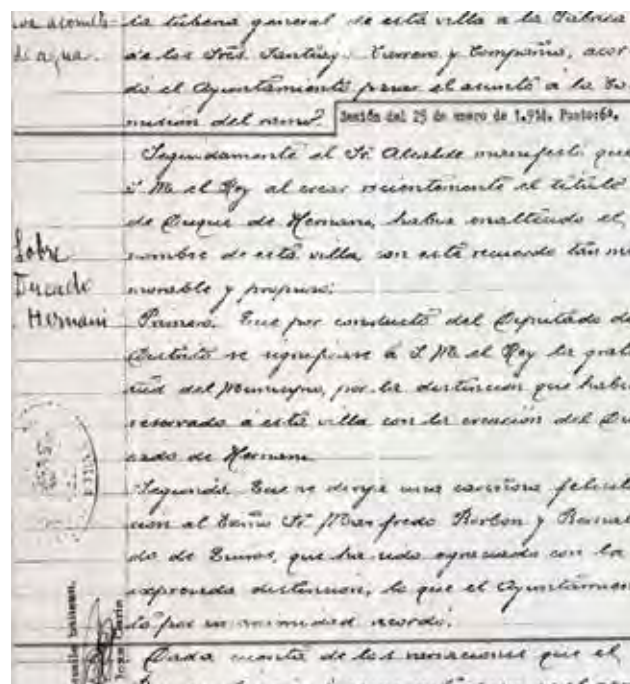 la tubería general de esta villa a la Fabrica
de los Sres. Santuj. Carrero y Compañía, acor
dó el Ayuntamiento pasar el asunto á la Co
misión del ramo.
Sesión del 25 de enero de 1.914. Punto:6º.
Segundamente el Sr. Alcalde manifestó que
S. M. el Rey al crear recientemente el titulo
de Duque de Hernani, habia enaltecido el
nombre de esta villa, con este recuerdo tan me
morable y propuso:
Primero. Que por conducto del Diputado de
Distrito se signifiquase á S. M. el Rey la grati
tud del Municipio, por la distinción que habia
reservado á esta villa con la creación del Du
cado de Hernani.
Segundo. Que se dirija una cariñosa felicita
ción al Exmo Sr. Manfredo Borbon y Bernal
do de Quiros, que ha sido agraciado con la
expresada distincion, lo que el Ayuntamien
to por unanimidad acordó.
Dada cuenta de las variaciones que el
de agua.
Sobre
Ducado
Hernani